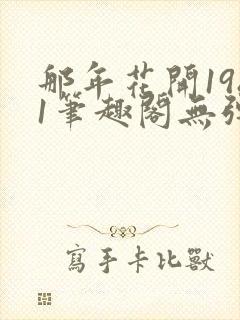 那年花開19
1筆趣閣無
寫手卡比獸